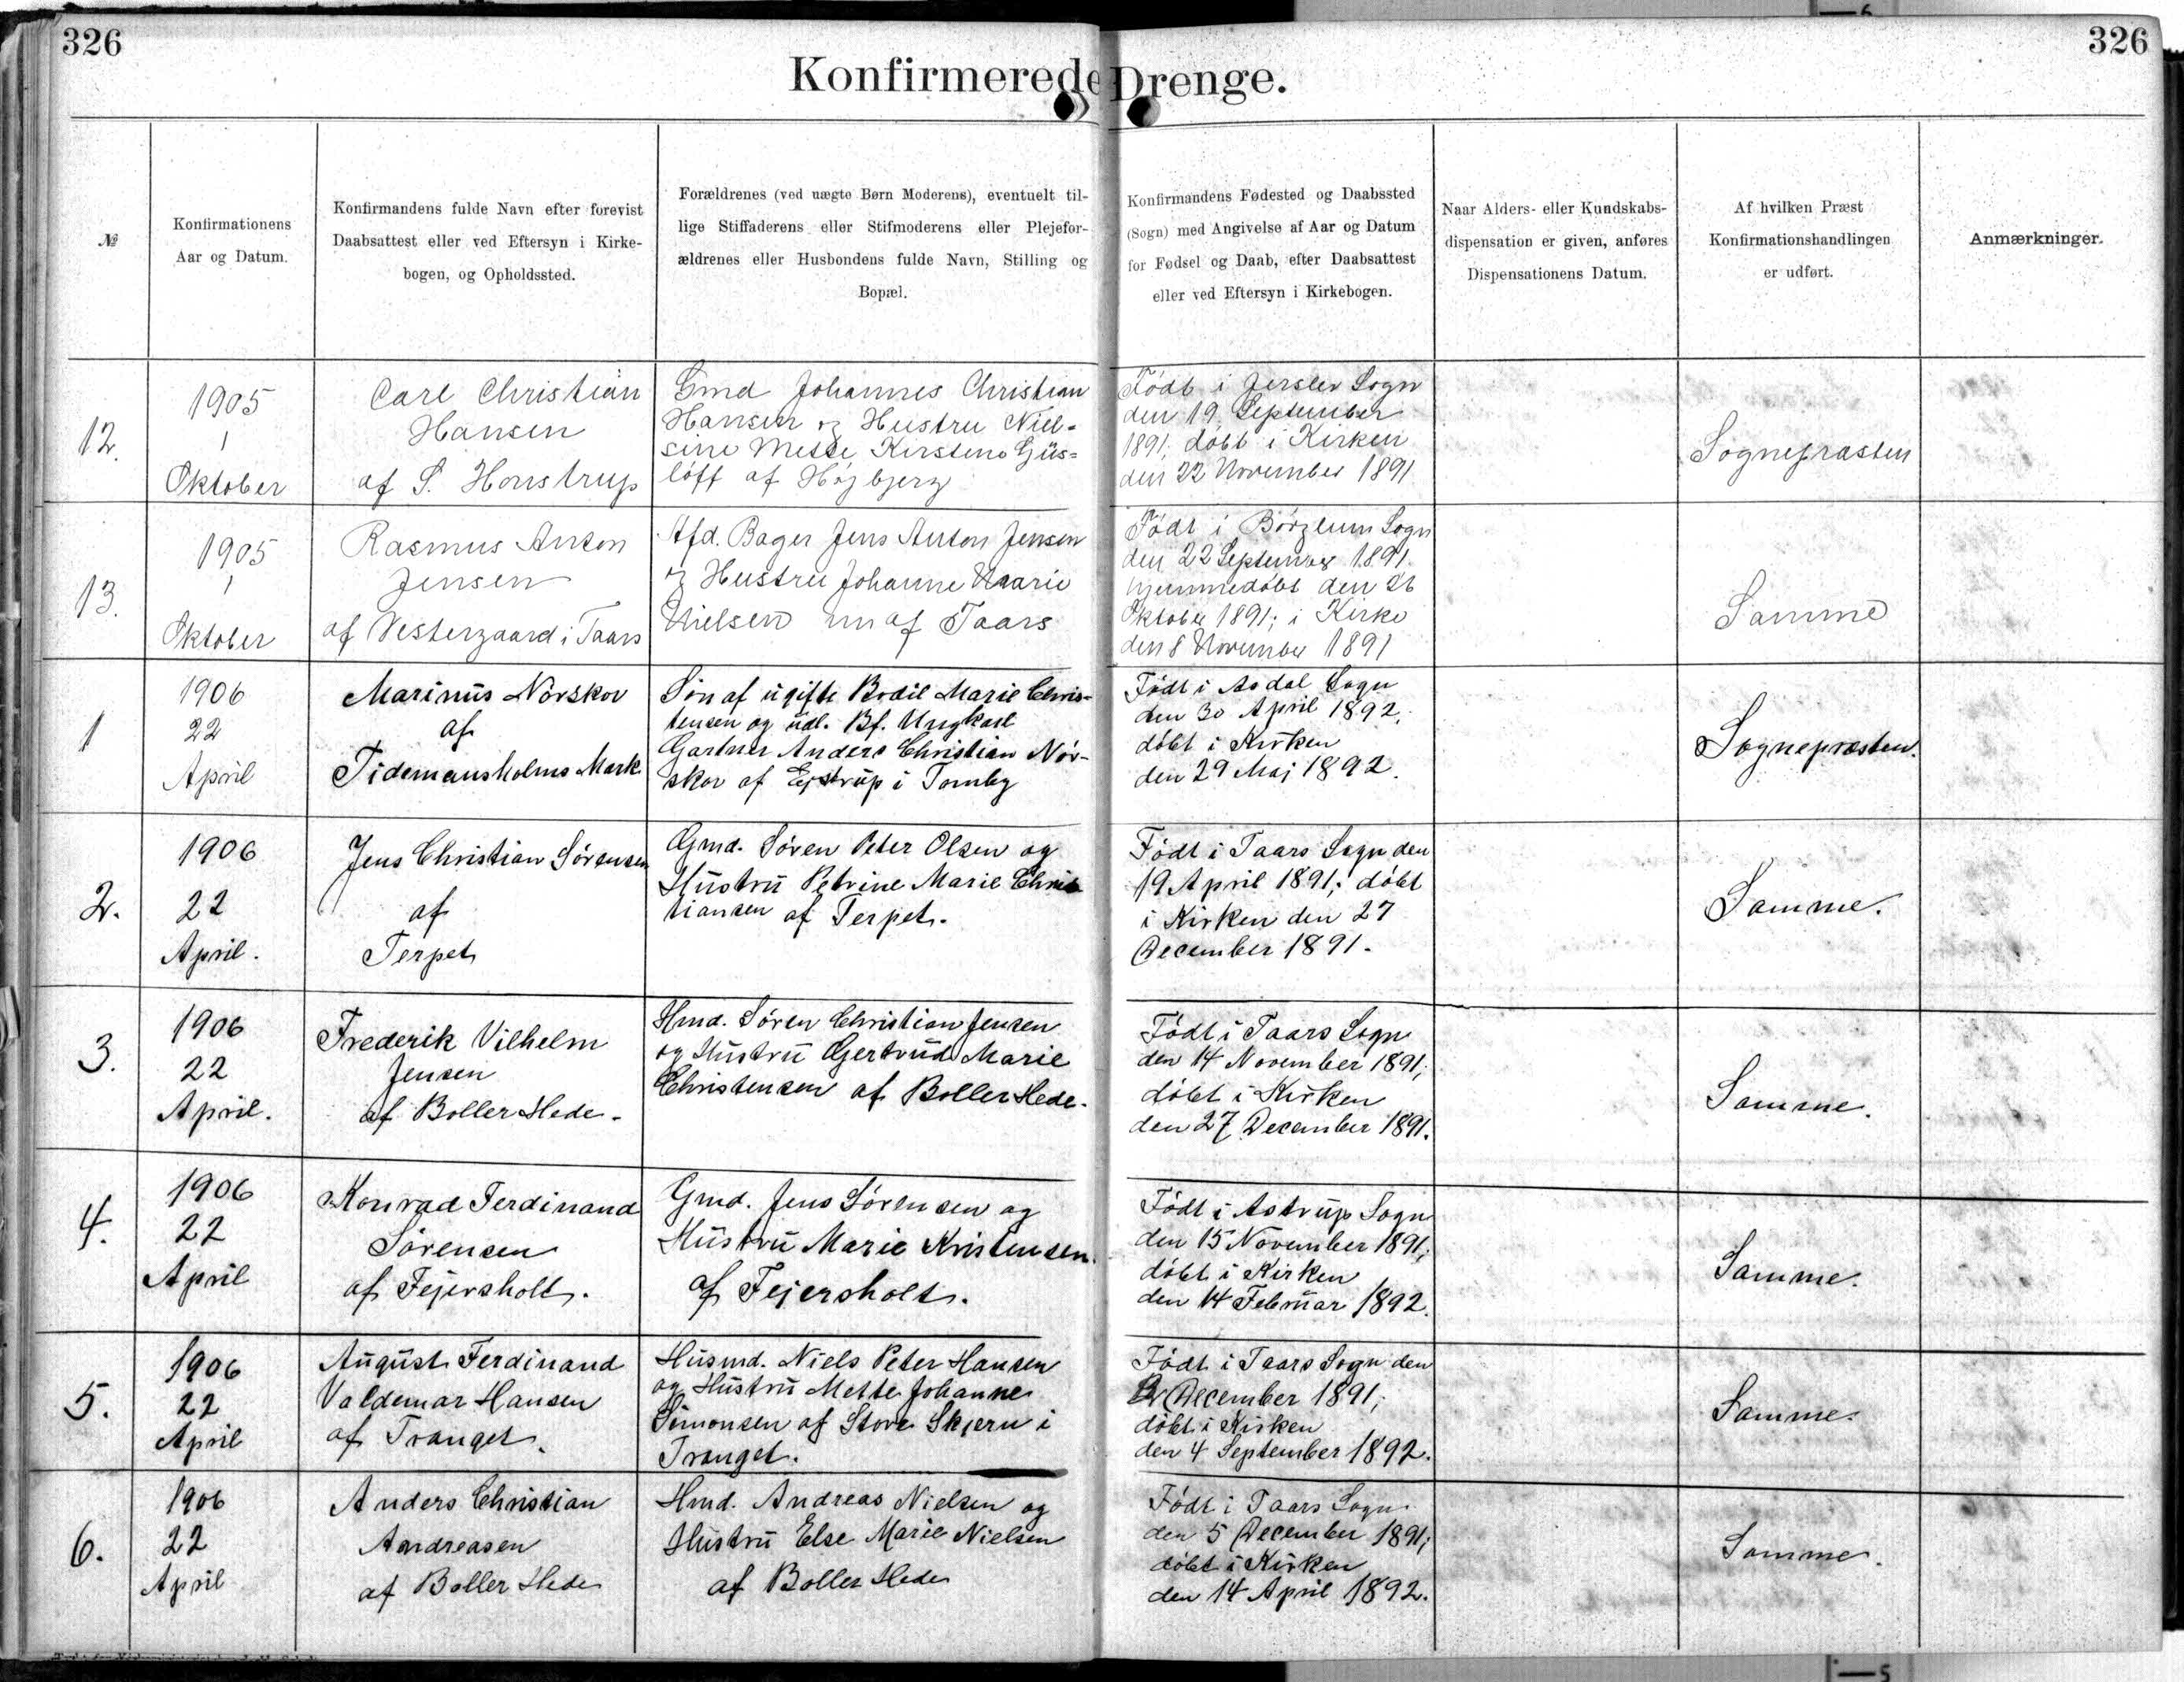 326
326
Konfirmerede Drenge.
№
Konfirmationens
Aar og Datum.
Konfirmandens fulde Navn efter forevist
Daabsattest eller ved Eftersyn i Kirke-
bogen, og Opholdssted.
Forældrenes (ved uægte Børn Moderens), eventuelt til-
lige Stiffaderens eller Stifmoderens eller Plejefor-
ældrenes eller Husbondens fulde Navn, Stilling og
Bopæl.
Konfirmandens Fødested og Daabssted
(Sogn) med Angivelse af Aar og Datum
for Fødsel og Daab, efter Daabsattest
eller ved Eftersyn i Kirkebogen.
Naar Alders- eller Kundskabs-
dispensation er given, anføres
Dispensationens Datum.
Af hvilken Præst
Konfirmationshandlingen
er udført.
Anmærkninger.
12.
1905
1
Oktober
Carl Christian
Hansen
af S. Honstrup
Gmd Johannes Christian
Hansen og Hustru Niel-
sine Mette Kirstine
løff af Højbjerg
Født i Jerslev Sogn
den 19 September
1891, døbt i Kirken
den 22 November 1891
Sognepræsten
13.
1905
1
Oktober
Rasmus Anton
Jensen
af Vestergaard i Taars
Afd. Bager Jens Anton Jensen
og Hustru Johanne Marie
Nielsen nu af Taars
Født i Børglum Sogn
den 22 September 1891.
hjemmedøbt den 26
Oktober 1891; i Kirke
den 8 November 1891
Samme
1
1906
22
April
Marinus Nørskov
af
Tidemansholms Mark
Søn af ugifte Bodil Marie Chris-
tensen og udl. Bf. Ungkarl
Gartner Anders Christian Nør-
skov af Ejstrup i Tornby
Født i Asdal Sogn
den 30 April 1892,
døbt i Kirken
den 29 Maj 1892.
Sognepræsten.
2.
1906
22
April.
Jens Christian Sørensen
af
Terpet
Gmd. Søren Peter Olsen og
Hustru Petrine Marie Chris
tiansen af Terpet.
Født i Taars Sogn den
19 April 1891; døbt
i Kirken den 27
December 1891.
Samme.
3.
1906
22
April.
Frederik Vilhelm
Jensen
af Boller Hede.
Hmd. Søren Christian Jensen
og Hustru Gertrud Marie
Christensen af Boller Hede.
Født i Taars Sogn
den 14 November 1891;
døbt i Kirken
den 27 December 1891.
Samme.
4.
1906
22
April
Konrad Ferdinand
Sørensen
af Fejersholt.
Gmd. Jens Sørensen og
Hustru Marie Kristensen.
af Fejersholt.
Født i Astrup Sogn
den 15 November 1891;
døbt i Kirken
den 14 Februar 1892.
Samme.
5.
1906
22
April
August Ferdinand
Valdemar Hansen
af Tranget.
Husmd. Niels Peter Hansen
og Hustru Mette Johanne
Simonsen af Store Skjern i
Tranget.
Født i Taars Sogn den
2 December 1891;
døbt i Kirken
den 4 September 1892.
Samme.
6.
1906
22
April
Anders Christian
Andreasen
af Boller Hede
Hmd. Andreas Nielsen og
Hustru Else Marie Nielsen
af Boller Hede
Født i Taars Sogn
den 5 December 1891;
døbt i Kirken
den 14 April 1892.
Samme.